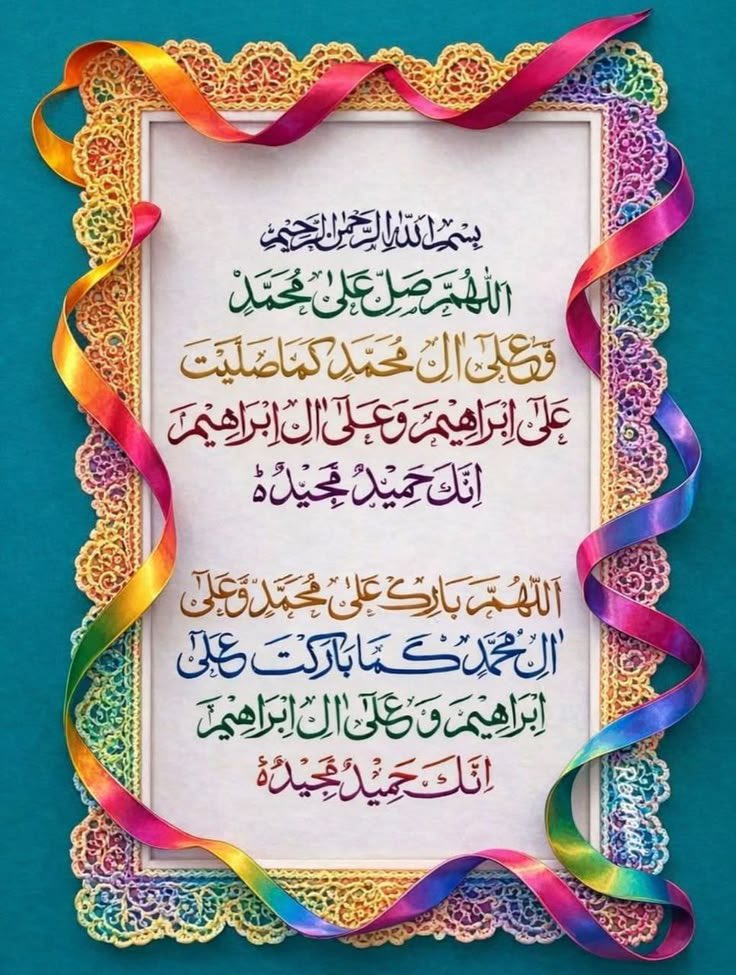 بسم الله الرحمن الرحيم
اللّٰهُمَّ صَلِّ عَلٰى مُحَمَّدٍ
وَّعَلٰٓى اٰلِ مُحَمَّدٍ كَمَا صَلَّيْتَ
عَلٰٓى اِبْرَاهِيْمَ وَعَلٰٓى اٰلِ اِبْرَاهِيْمَ
اِنَّكَ حَمِيْدٌ مَّجِيْدٌ ہ
اَللّٰهُمَّ بَارِكْ عَلٰى مُحَمَّدٍ وَّعَلٰٓى
اٰلِ مُحَمَّدٍ كَمَا بَارَكْتَ عَلٰٓى
اِبْرَاهِيْمَ وَعَلٰٓى اٰلِ اِبْرَاهِيْمَ
اِنَّكَ حَمِيْدٌ مَّجِيْدٌ ہ